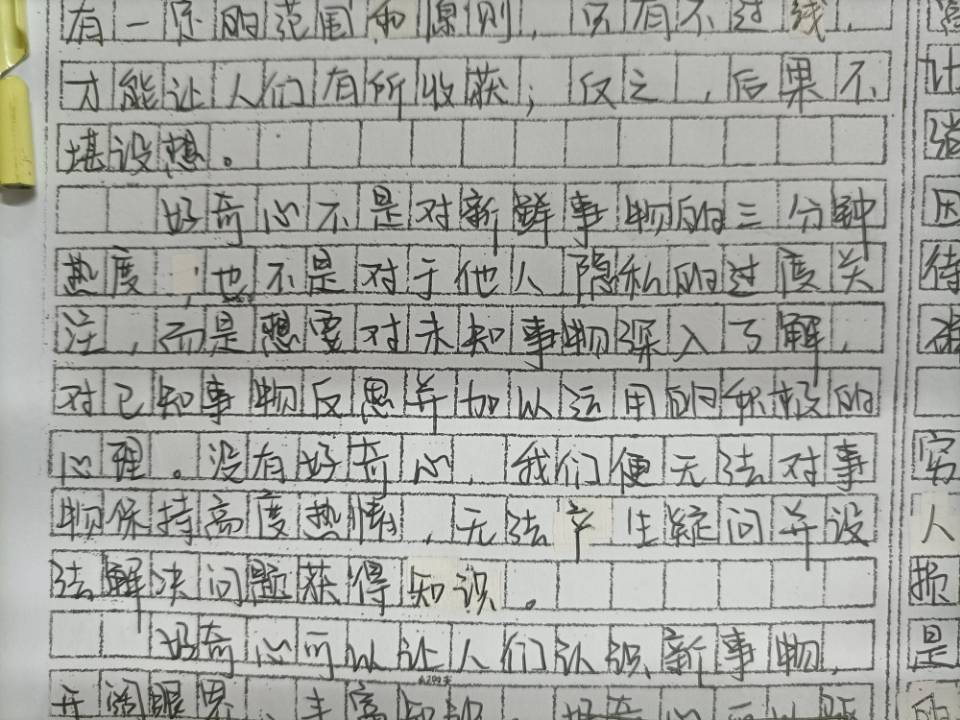 有一定的范围和原则，只有不过线，
才能让人们有所收获；反之，后果不
堪设想。
好奇心不是对新鲜事物的三分钟
热度，也不是对于他人隐私的过度关
注，而是想要对未知事物深入了解，
对已知事物反思并加以运用的积极的
心理。没有好奇心，我们便无法对事
物保持高度热情，无法产生疑问并设
法解决问题获得知识。
好奇心可以让人们认识新事物，
开阔眼界、丰富知识。好奇心可以
因
待
穷
人
损
是
的